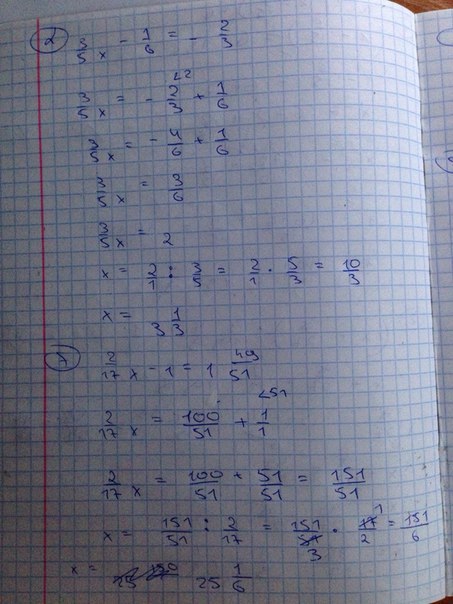 ② 3/5 x - 1/6 = - 2/3
3/5 x = - 2/3 ∠2 + 1/6
3/5 x = - 4/6 + 1/6
3/5 x = 3/6
3/5 x = 2
x = 2/1 : 3/5 = 2/1 · 5/3 = 10/3
x = 3 1/3
① 2/17 x - 1 = 1 49/51
2/17 x = 100/51 + 1/1 ∠51
2/17 x = 100/51 + 51/51 = 151/51
x = 151/51 : 2/17 = 151/51 3 · 17/2 1 = 151/6
x = 25 1/6